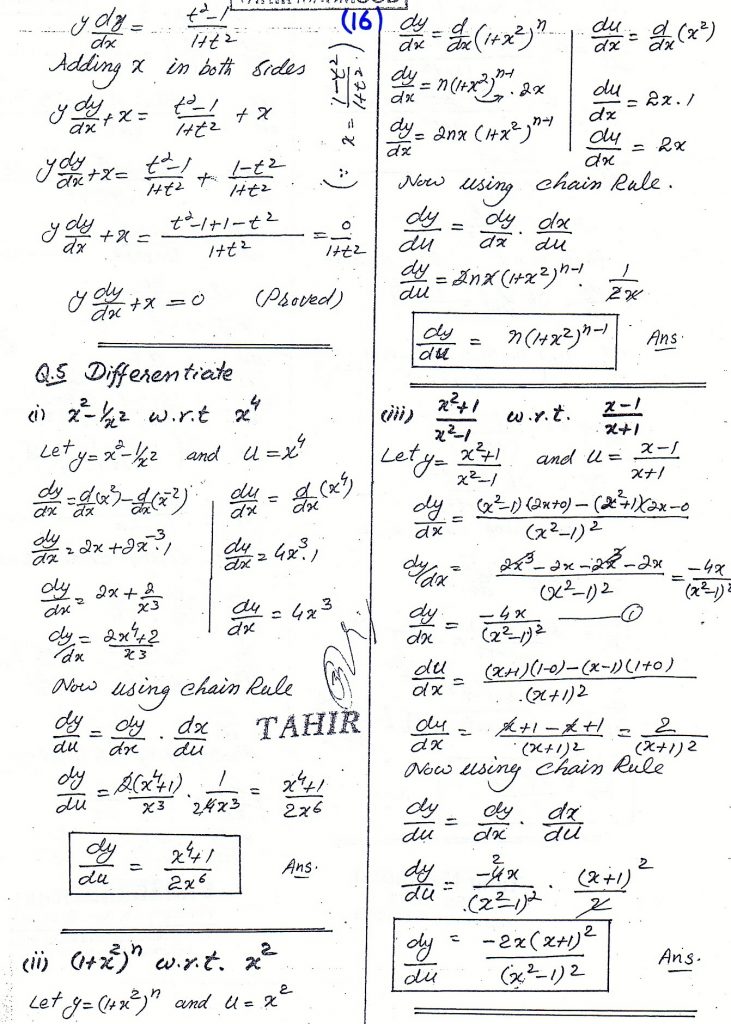 (16)
y dy/dx = t²-1/1+t²
Adding x in both sides
y dy/dx + x = t²-1/1+t² + x
(∵ x = 1-t²/1+t²)
y dy/dx + x = t²-1/1+t² + 1-t²/1+t²
y dy/dx + x = t²-1+1-t²/1+t² = 0/1+t²
y dy/dx + x = 0 (Proved)
Q.5 Differentiate
(i) x²-1/x² w.r.t x⁴
Let y = x²-1/x² and u = x⁴
dy/dx = d/dx(x²) - d/dx(x⁻²)
dy/dx = 2x + 2x⁻³.1
dy/dx = 2x + 2/x³
dy/dx = 2x⁴+2/x³
du/dx = d/dx(x⁴)
du/dx = 4x³.1
du/dx = 4x³
Now using chain Rule
dy/du = dy/dx . dx/du
TAHIR
dy/du = 2(x⁴+1)/x³ . 1/2 4x³ = x⁴+1/2x⁶
dy/du = x⁴+1/2x⁶ Ans.
(ii) (1+x²)ⁿ w.r.t. x²
Let y = (1+x²)ⁿ and u = x²
dy/dx = d/dx(1+x²)ⁿ
dy/dx = n(1+x²)ⁿ⁻¹ . 2x
dy/dx = 2nx(1+x²)ⁿ⁻¹
du/dx = d/dx(x²)
du/dx = 2x.1
du/dx = 2x
Now using chain Rule.
dy/du = dy/dx . dx/du
dy/du = 2nx(1+x²)ⁿ⁻¹ . 1/2x
dy/du = n(1+x²)ⁿ⁻¹ Ans.
(iii) x²+1/x²-1 w.r.t. x-1/x+1
Let y = x²+1/x²-1 and u = x-1/x+1
dy/dx = (x²-1)(2x+0) - (x²+1)(2x-0/(x²-1)²
dy/dx = 2x³-2x-2x³-2x/(x²-1)² = -4x/(x²-1)²
dy/dx = -4x/(x²-1)² ①
du/dx = (x+1)(1-0)-(x-1)(1+0)/(x+1)²
du/dx = x+1-x+1/(x+1)² = 2/(x+1)²
Now using chain Rule
dy/du = dy/dx . dx/du
dy/du = -4x 2/(x²-1)² . (x+1)²/2
dy/du = -2x(x+1)²/(x²-1)² Ans.